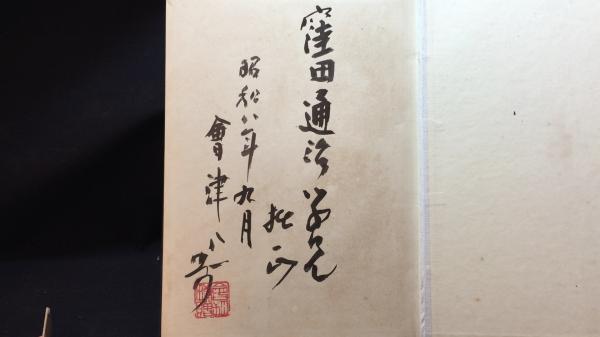 窪田通治学兄
批正
昭和八年九月
會津八一